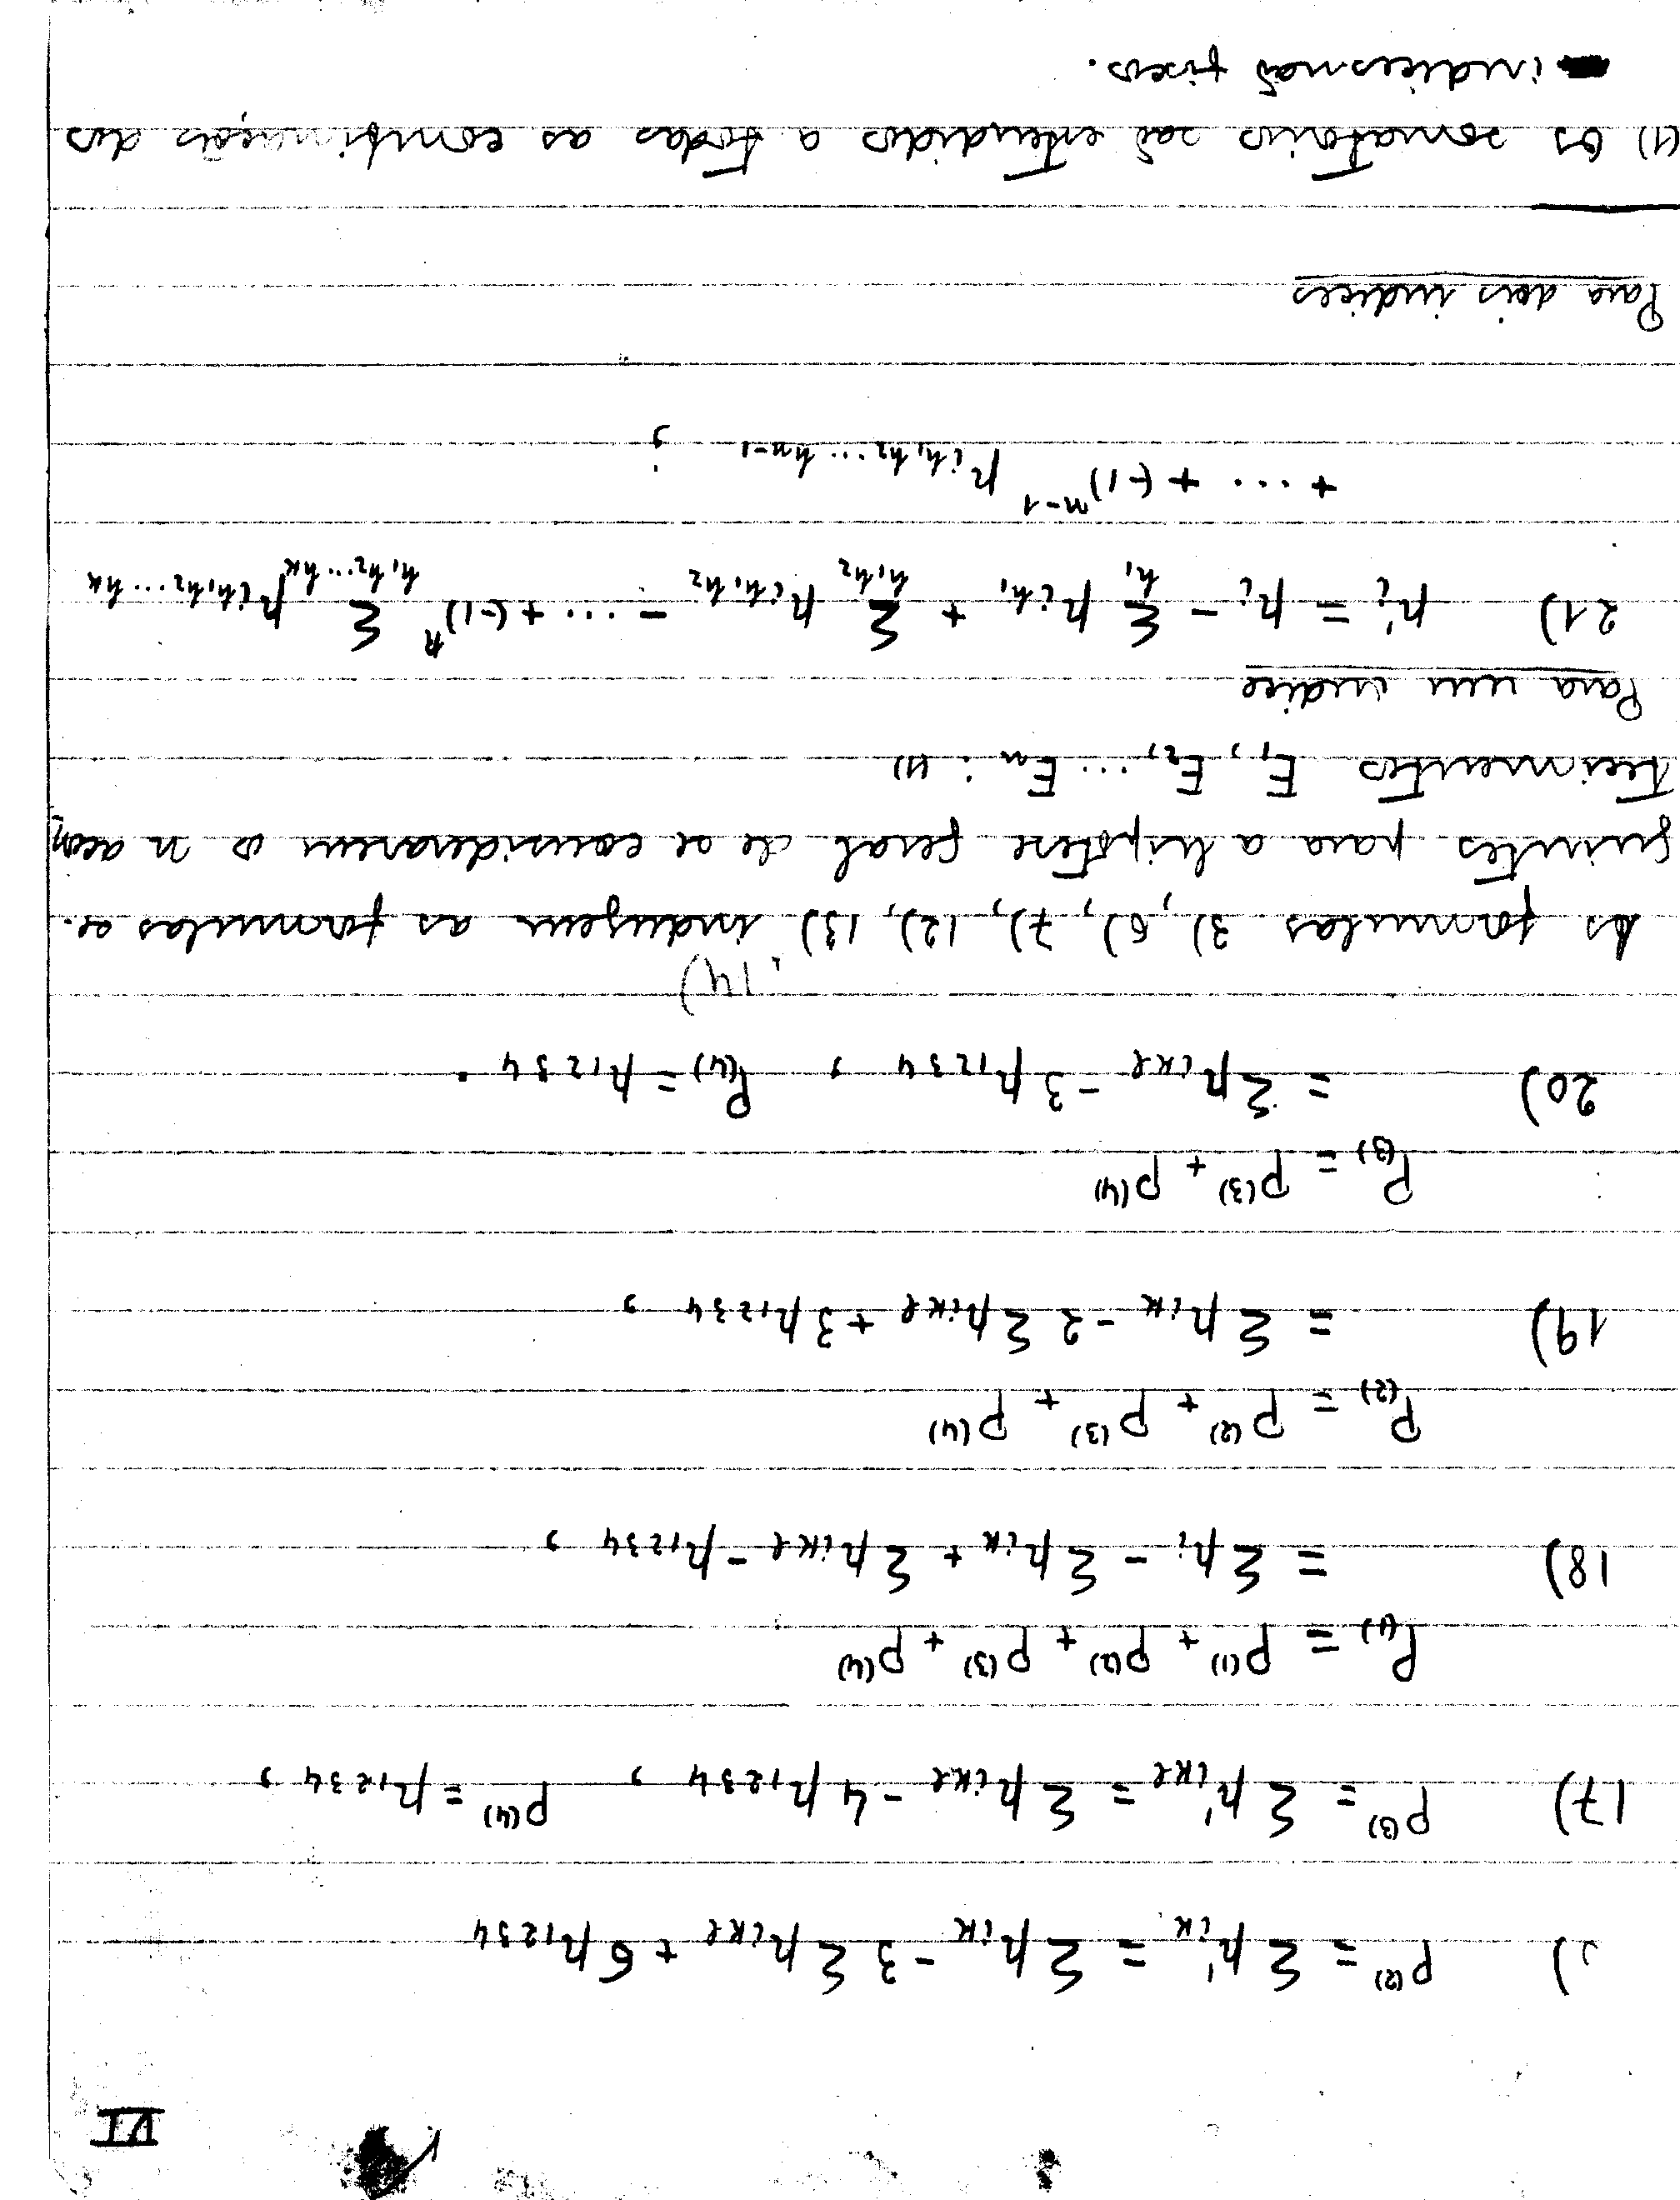 VI
) p(2) = Σ p'ik = Σ pik - 3 Σ pikl + 6 p1234
17) p(3) = Σ p'ikl = Σ pikl - 4 p1234 , p(4) = p1234 ,
P(1) = p(1) + p(2) + p(3) + p(4)
18) = Σ pi - Σ pik + Σ pikl - p1234 ,
P(2) = p(2) + p(3) + p(4)
19) = Σ pik - 2 Σ pikl + 3 p1234 ,
P(3) = p(3) + p(4)
20) = Σ pikl - 3 p1234 , P(4) = p1234 .
14)
As formulas 3), 6), 7), 12), 13) induzem as formulas se-
guintes para a hipótese geral de se considerarem o n acon-
tecimentos E1, E2, ... En : (1)
Para um indice
21) p'i = pi - Σh1 pih1 + Σh1h2 pih1h2 - ... + (-1)^k Σh1h2...hk pih1h2...hk
+ ... + (-1)^n-1 pih1h2...hn-1 ;
Para dois indices
(1) Os somatórios são extendidos a todas as combinações dos
indices não fixos.